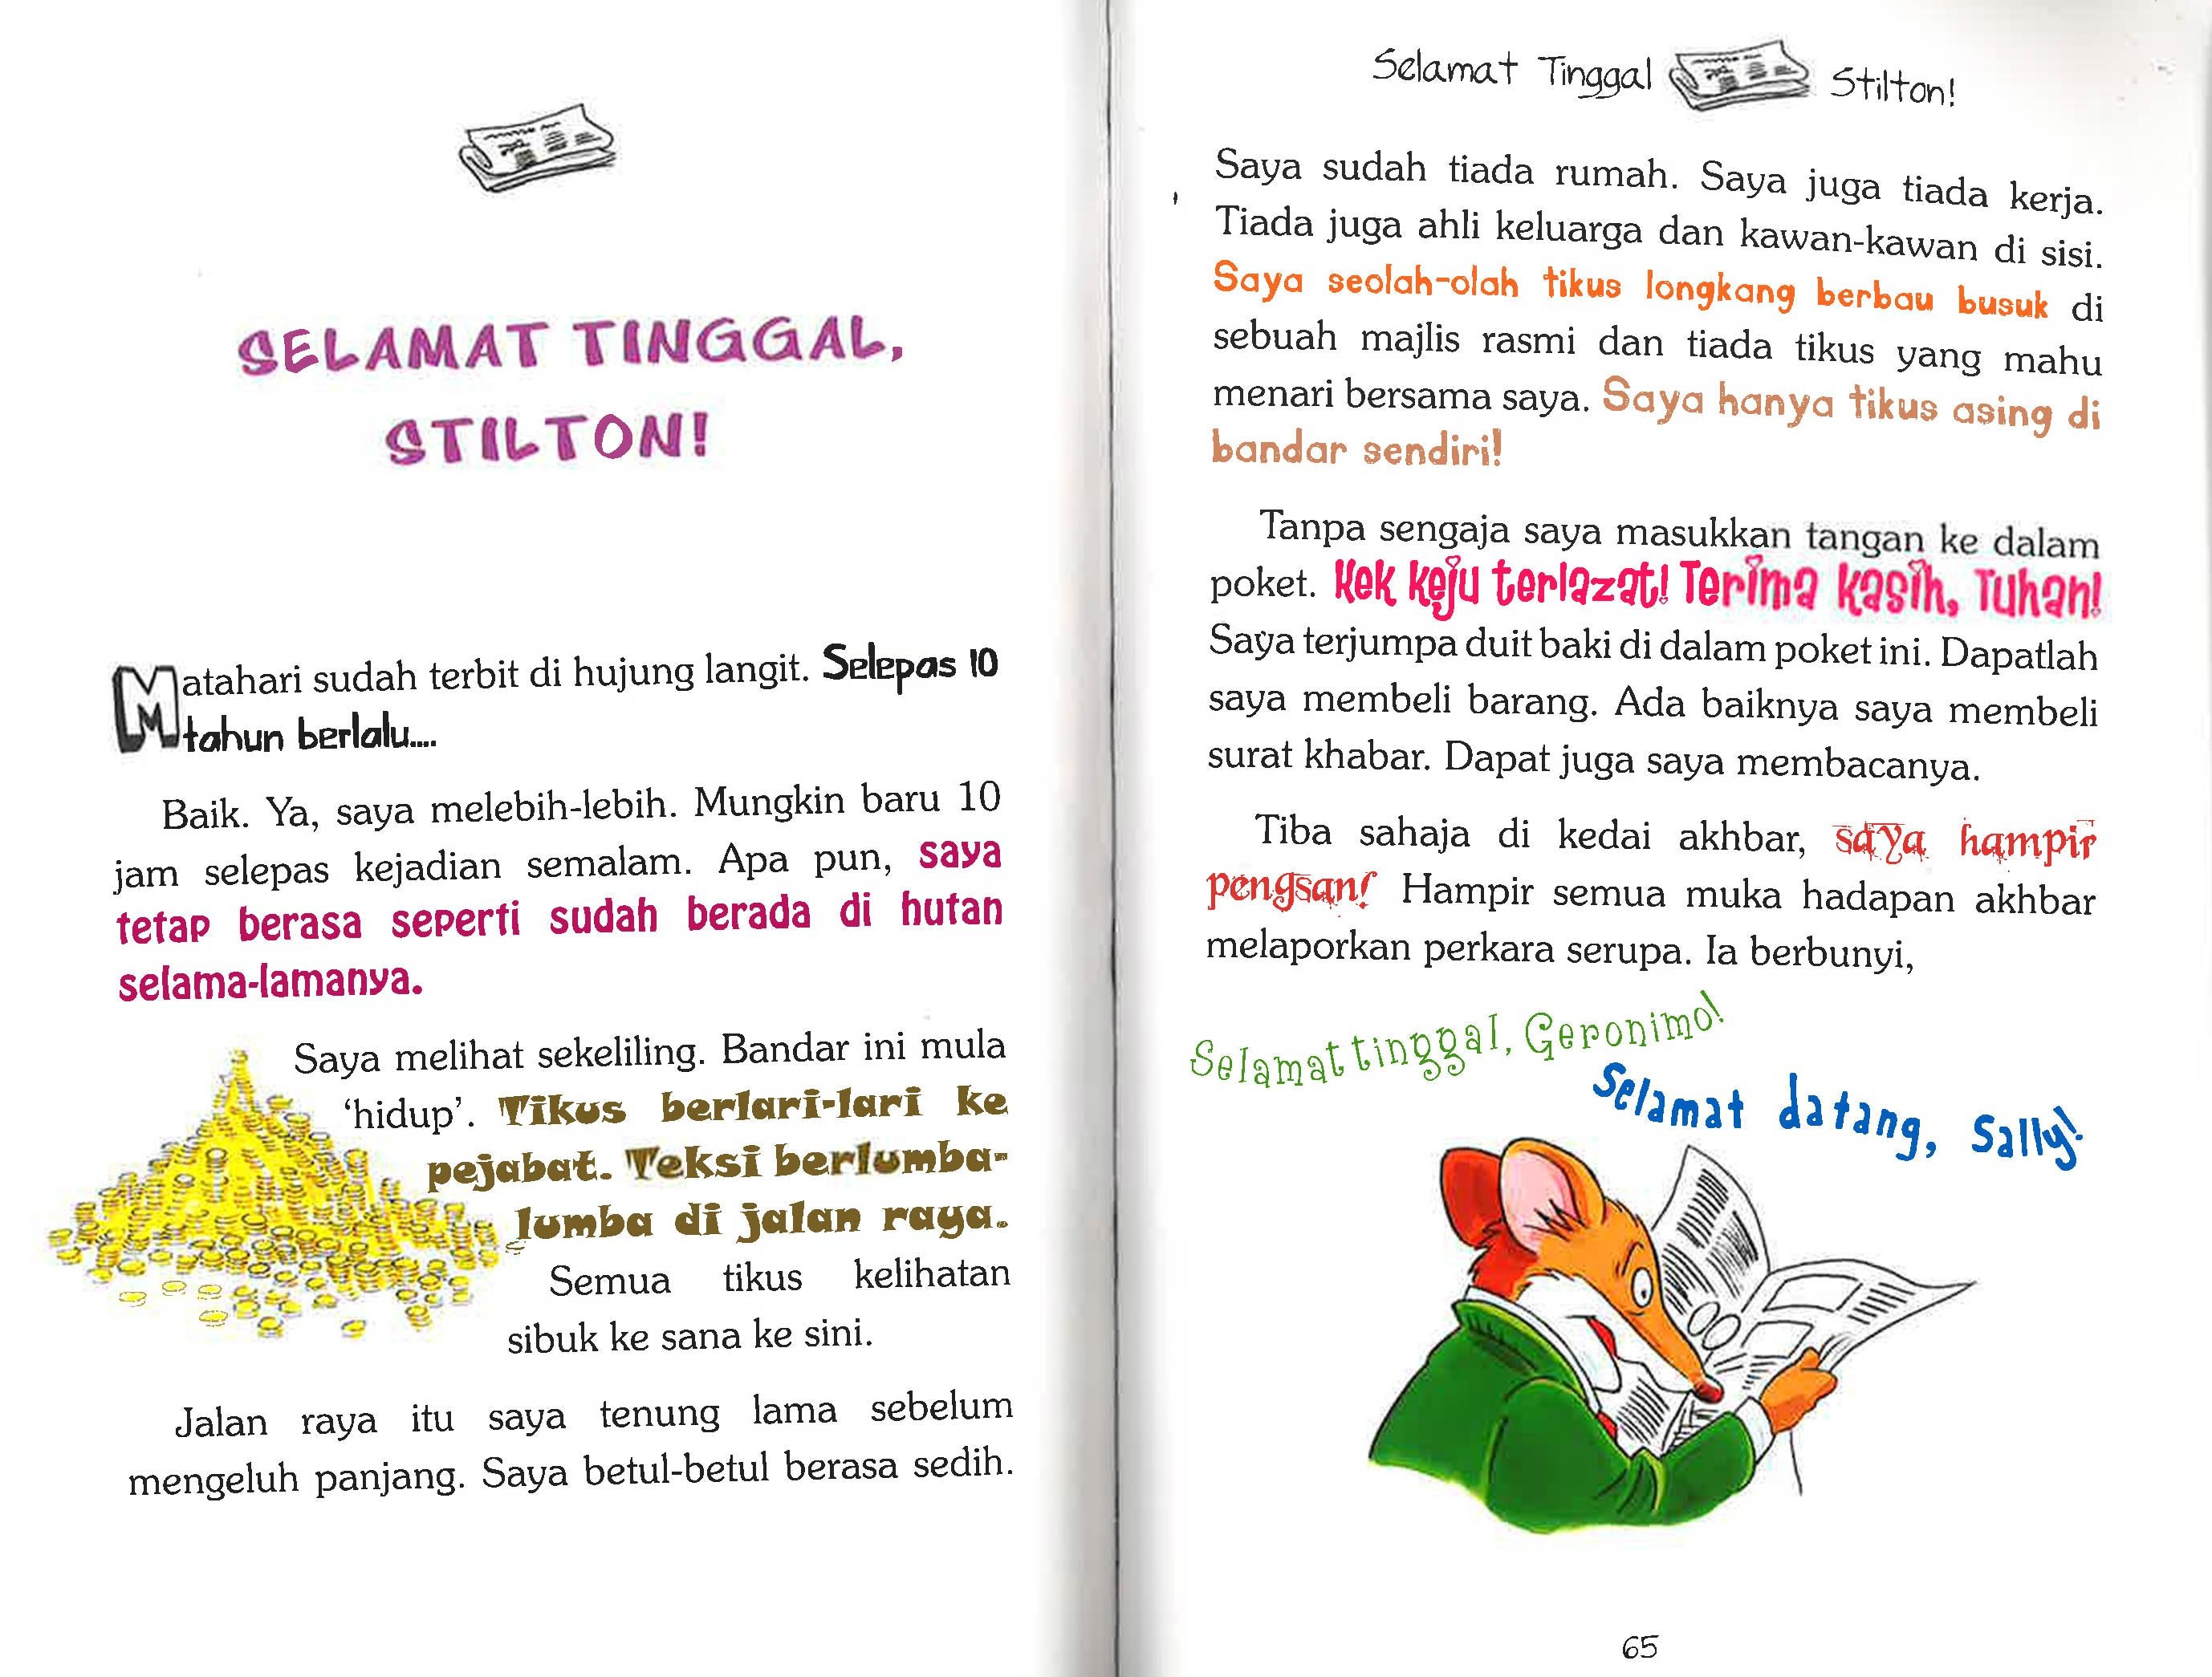 SELAMAT TINGGAL,
STILTON!
Matahari sudah terbit di hujung langit. Selepas 10
tahun berlalu....
Baik. Ya, saya melebih-lebih. Mungkin baru 10
jam selepas kejadian semalam. Apa pun, saya
tetap berasa seperti sudah berada di hutan
selama-lamanya.
Saya melihat sekeliling. Bandar ini mula
‘hidup’. Tikus berlari-lari ke
pejabat. Teksi berlumba-
lumba di jalan raya.
Semua tikus kelihatan
sibuk ke sana ke sini.
Jalan raya itu saya tenung lama sebelum
mengeluh panjang. Saya betul-betul berasa sedih.
Selamat Tinggal Stilton!
Saya sudah tiada rumah. Saya juga tiada kerja.
Tiada juga ahli keluarga dan kawan-kawan di sisi.
Saya seolah-olah tikus longkang berbau busuk di
sebuah majlis rasmi dan tiada tikus yang mahu
menari bersama saya. Saya hanya tikus asing di
bandar sendiri!
Tanpa sengaja saya masukkan tangan ke dalam
poket. Kek keju terlazat! Terima kasih, Tuhan!
Saya terjumpa duit baki di dalam poket ini. Dapatlah
saya membeli barang. Ada baiknya saya membeli
surat khabar. Dapat juga saya membacanya.
Tiba sahaja di kedai akhbar, saya hampir
pengsan! Hampir semua muka hadapan akhbar
melaporkan perkara serupa. Ia berbunyi,
Selamat tinggal, Geronimo!
Selamat datang, Sally!
65